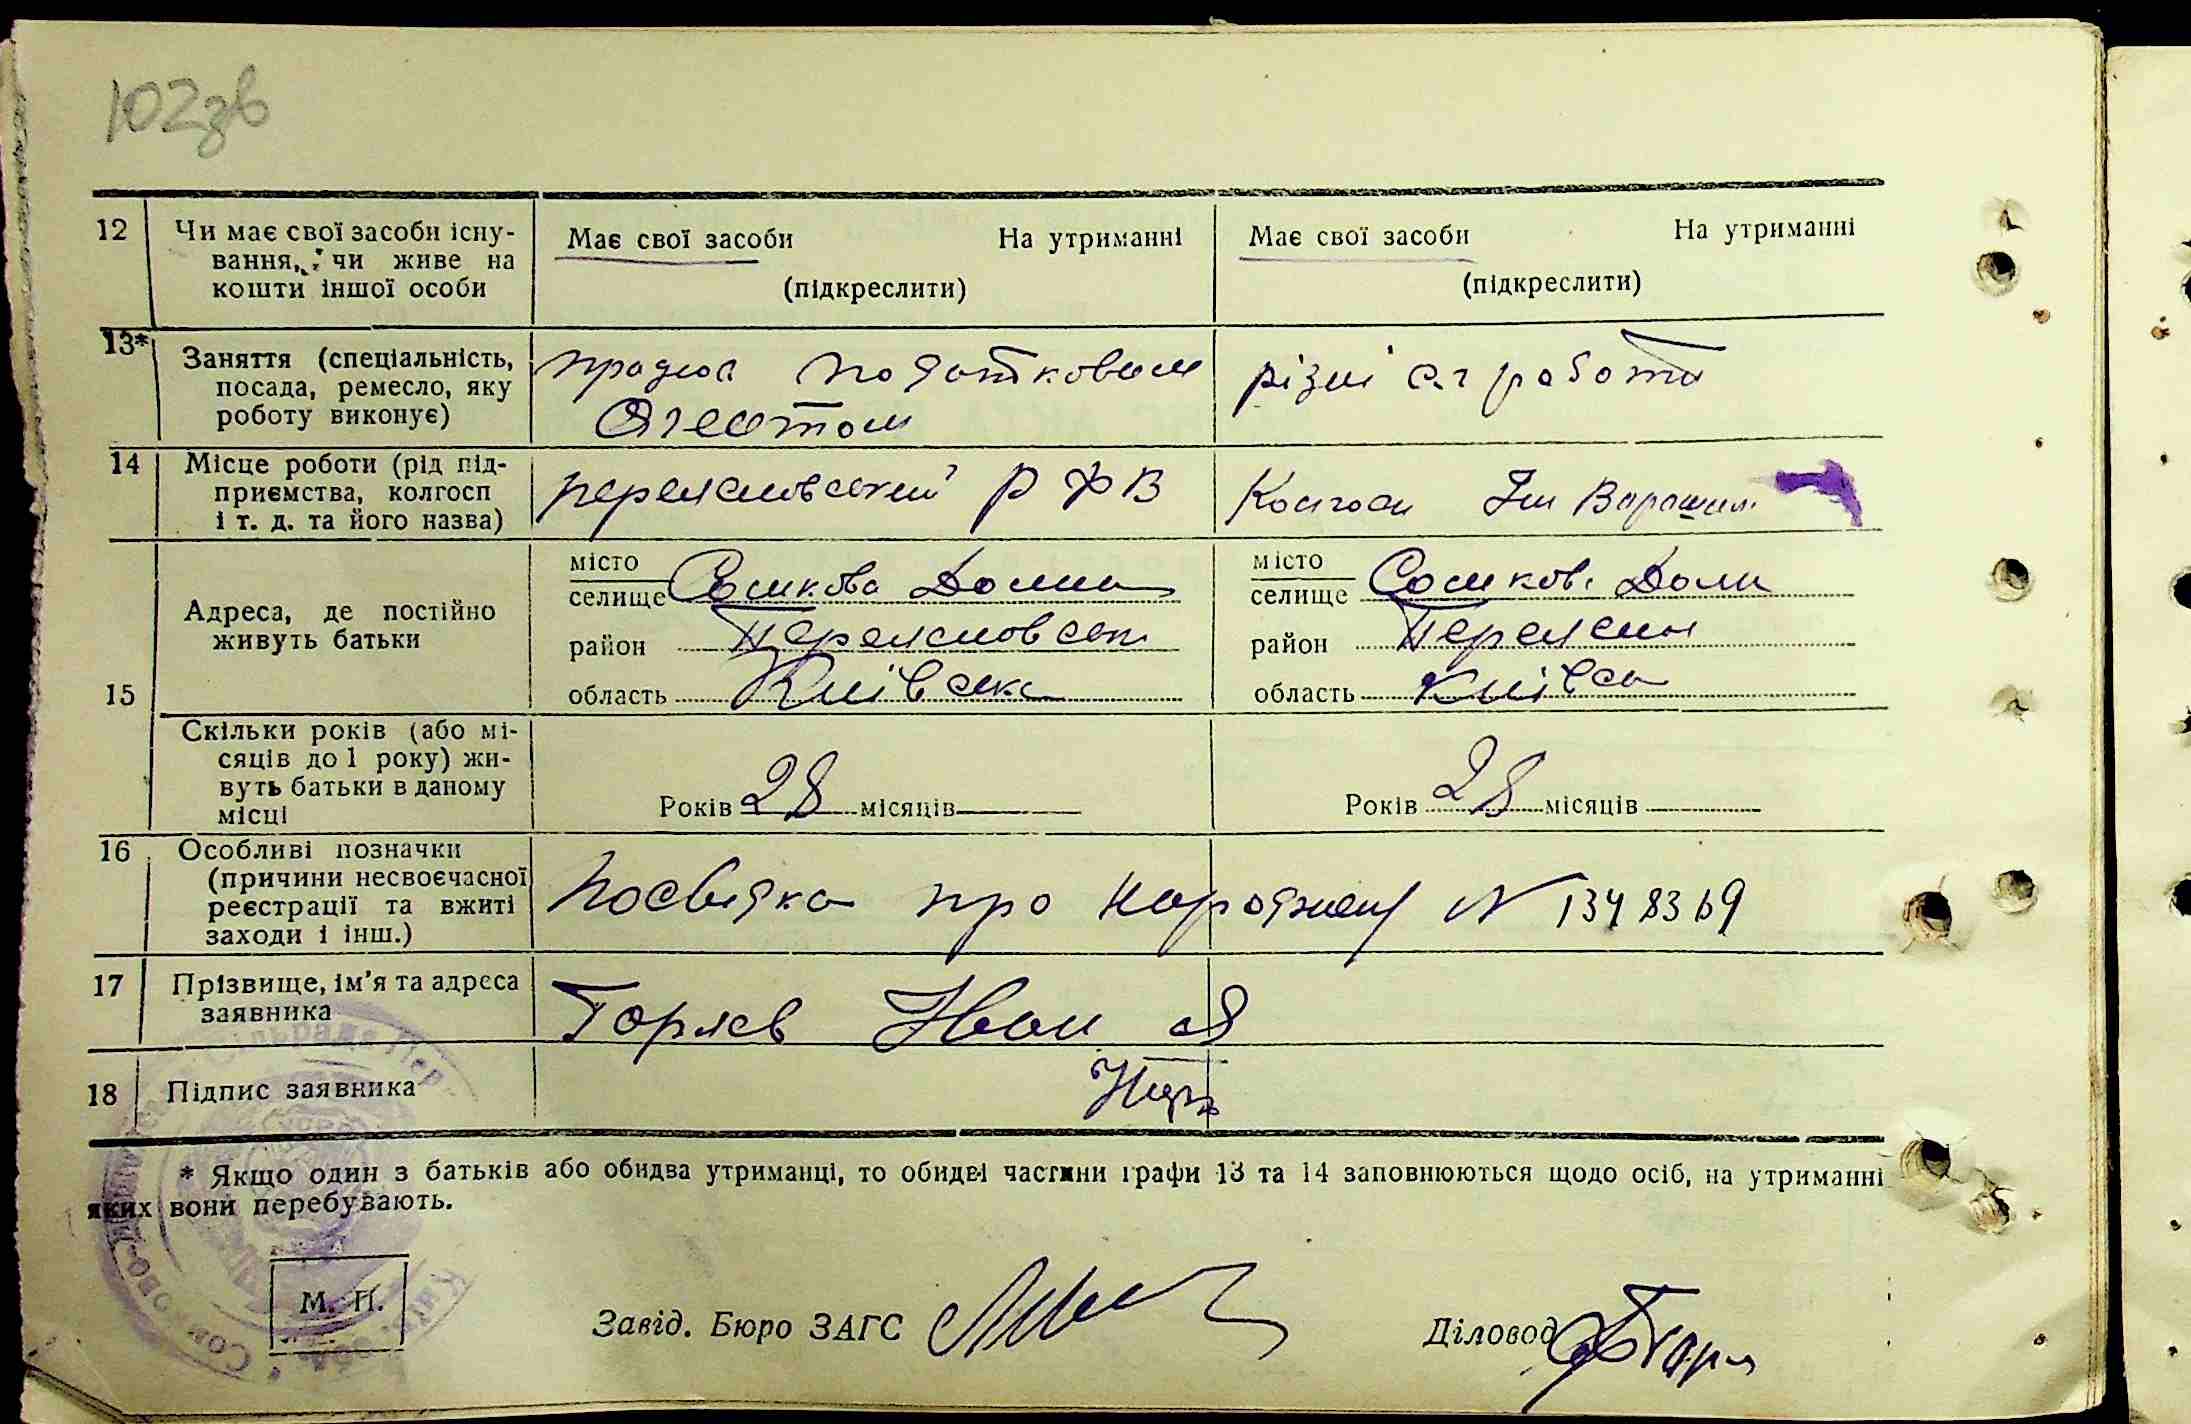 102зв
12 Чи має свої засоби існу-
вання, чи живе на
кошти іншої особи
Має свої засоби На утриманні
(підкреслити)
Має свої засоби На утриманні
(підкреслити)
13* Заняття (спеціальність,
посада, ремесло, яку
роботу виконує)
працює податковим
Агентом
різні с.г роботи
14 Місце роботи (рід під-
приємства, колгосп
і т. д. та його назва)
переяславський РФВ
Колгосп Ім Варашил
15 Адреса, де постійно
живуть батьки
місто
селище Сошкова Долина
район Переяславськ
область Київськ
місто
селище Сошков. Доли
район Переясл
область Київсь
Скільки років (або мі-
сяців до 1 року) жи-
вуть батьки в даному
місці
Років 28 місяців
Років 28 місяців
16 Особливі позначки
(причини несвоєчасної
реєстрації та вжиті
заходи і інш.)
Посвідка про народжен N
17 Прізвище, ім'я та адреса
заявника
Горяєв Іван Я
18 Підпис заявника
* Якщо один з батьків або обидва утриманці, то обидві частини графи 13 та 14 заповнюються щодо осіб, на утриманні
яких вони перебувають.
М. П.
Завід. Бюро ЗАГС
Діловод